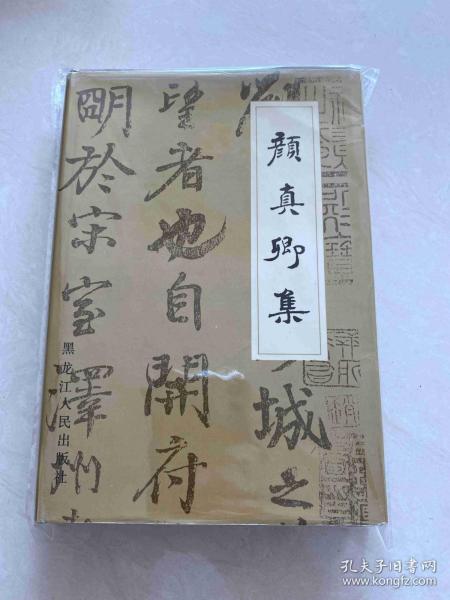 颜真卿集
城之
望者也自開府
明於宋室澤州
黑龙江人民出版社
孔夫子旧书网
www.kongfz.com